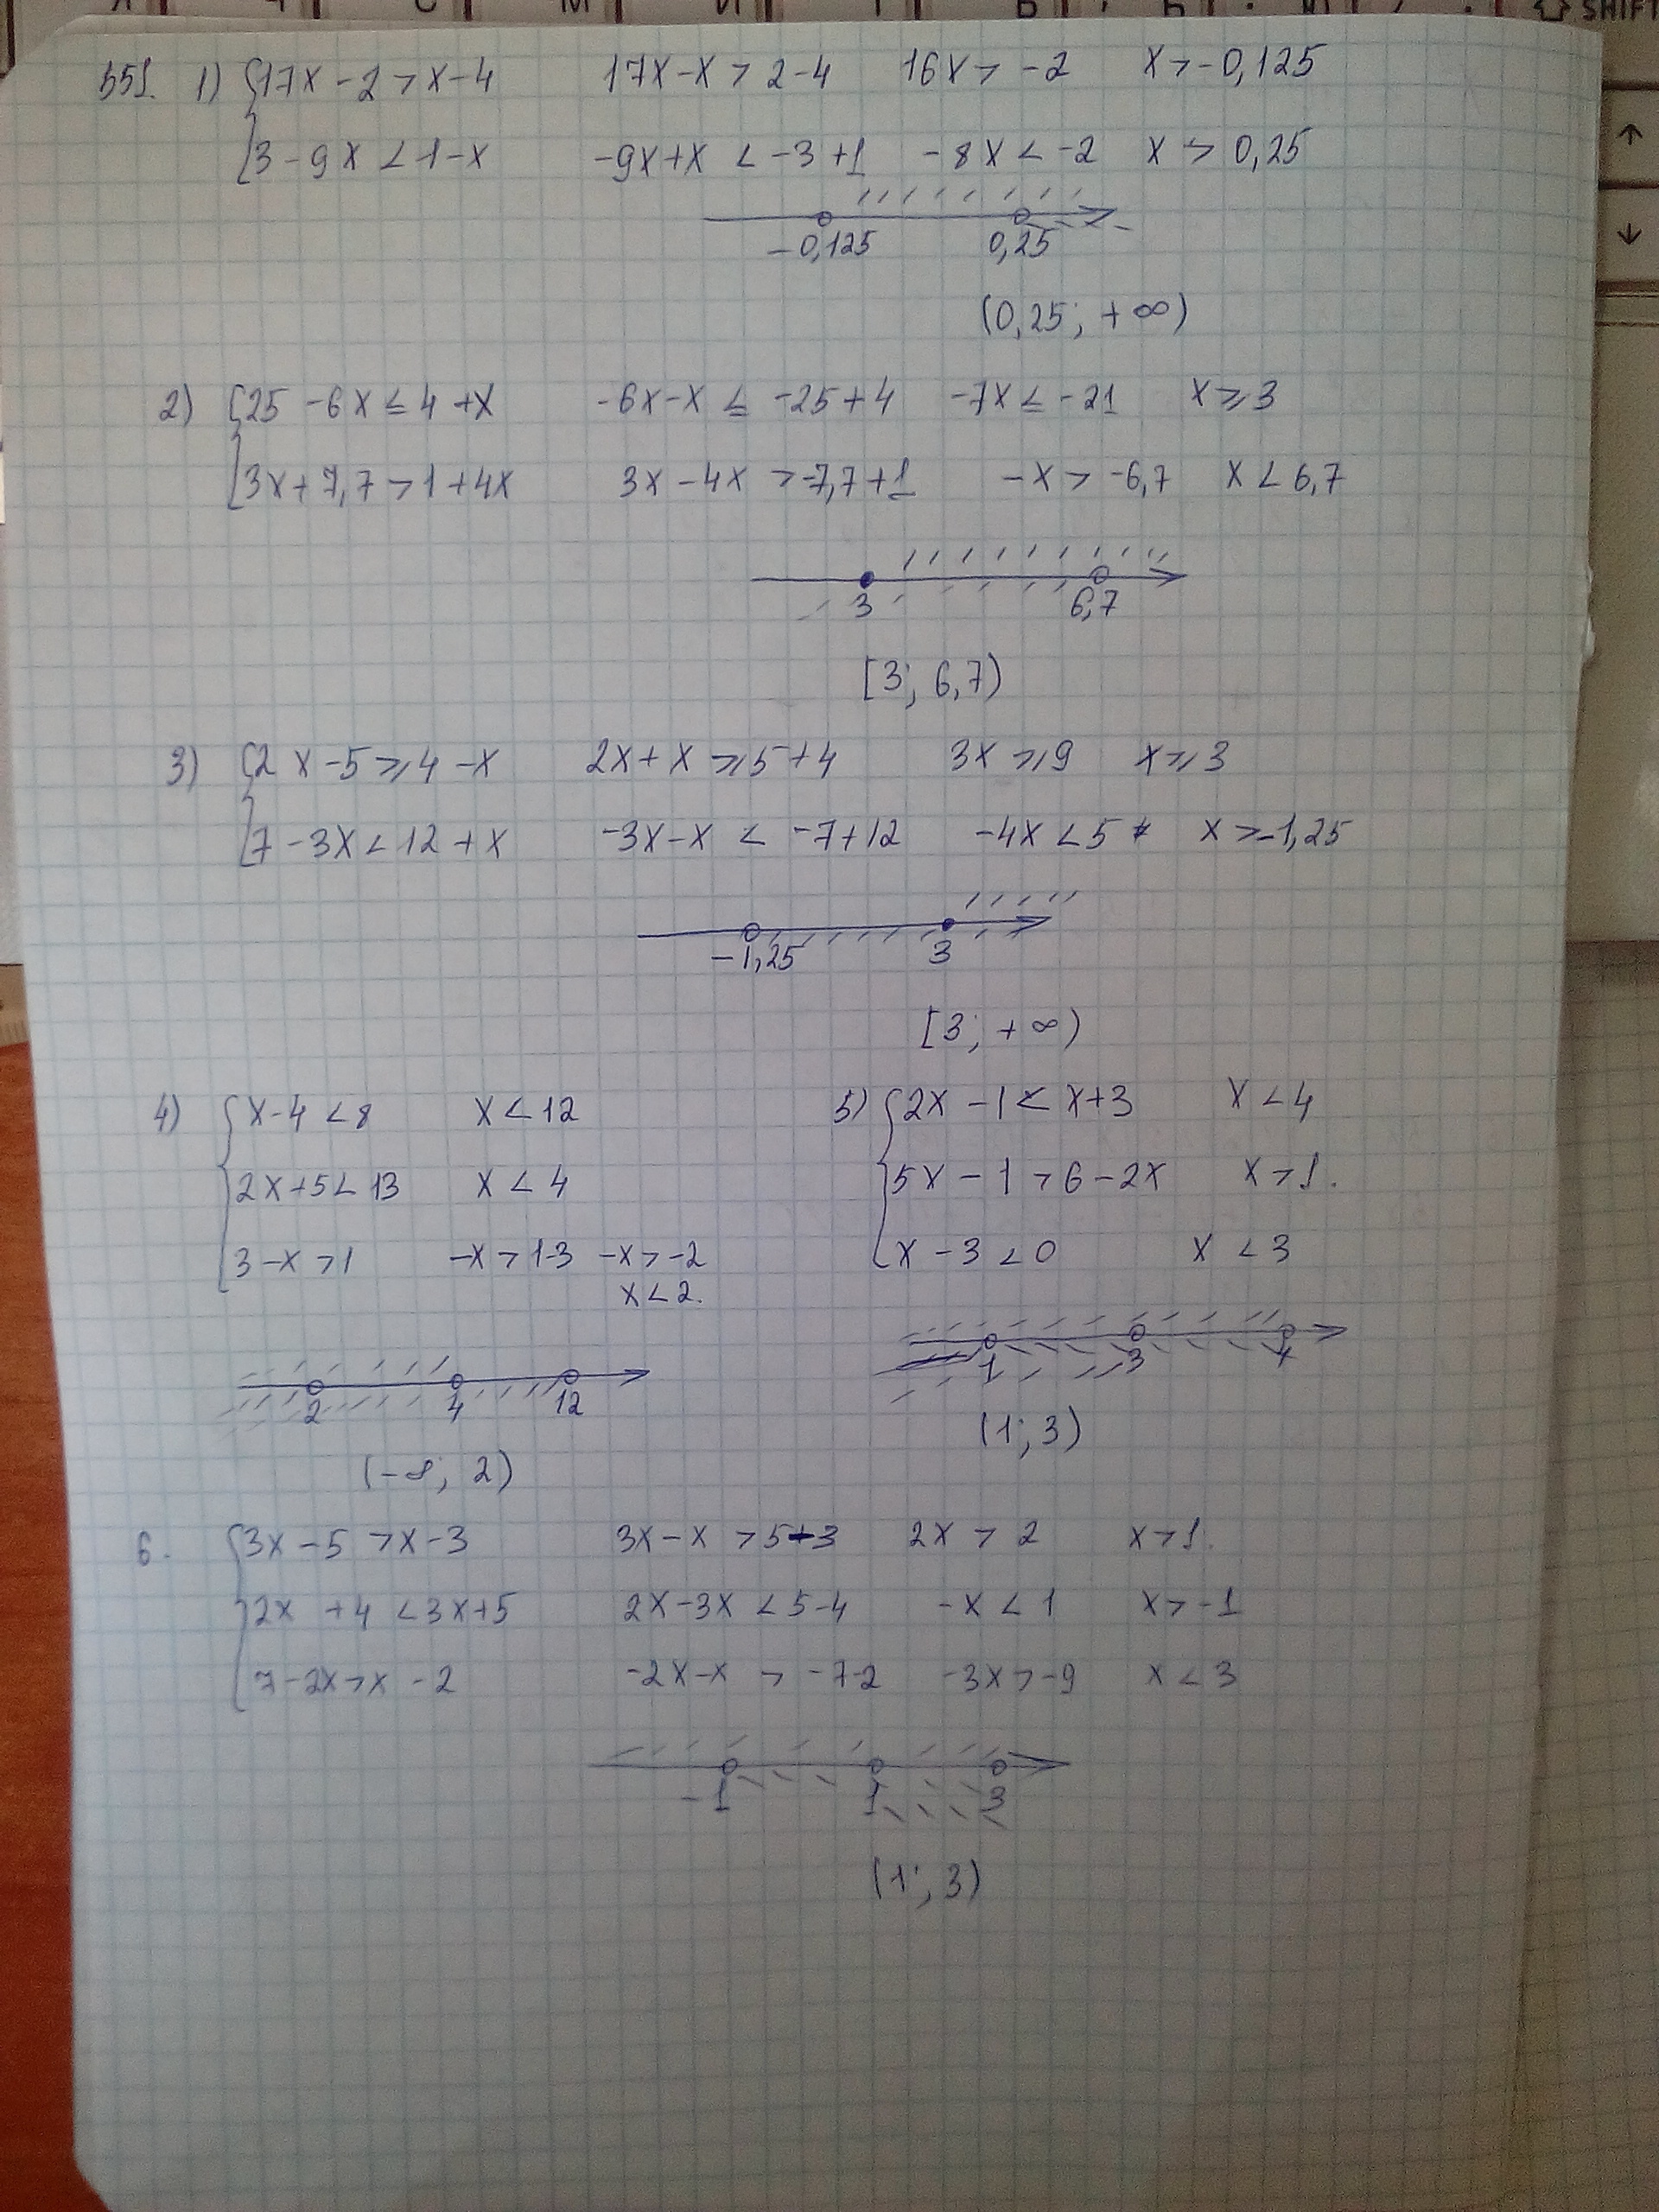 551. 1) {17x - 2 > x - 4 17x - x > 2 - 4 16x > -2 x > -0,125
3 - 9x < 1 - x -9x + x < -3 + 1 -8x < -2 x > 0,25
-0,125 0,25
(0,25; +∞)
2) {25 - 6x ≤ 4 + x -6x - x ≤ -25 + 4 -7x ≤ -21 x ≥ 3
3x + 7,7 > 1 + 4x 3x - 4x > -7,7 + 1 -x > -6,7 x < 6,7
3 6,7
[3; 6,7)
3) {2x - 5 ≥ 4 - x 2x + x ≥ 5 + 4 3x ≥ 9 x ≥ 3
7 - 3x < 12 + x -3x - x < -7 + 12 -4x < 5 x > -1,25
-1,25 3
[3; +∞)
4) {x - 4 < 8 x < 12
2x + 5 < 13 x < 4
3 - x > 1 -x > 1-3 -x > -2
x < 2.
2 4 12
(-∞; 2)
5) {2x - 1 < x + 3 x < 4
5x - 1 > 6 - 2x x > 1.
x - 3 < 0 x < 3
1 3 4
(1; 3)
6. {3x - 5 > x - 3 3x - x > 5 - 3 2x > 2 x > 1.
2x + 4 < 3x + 5 2x - 3x < 5 - 4 -x < 1 x > -1
7 - 2x > x - 2 -2x - x > -7-2 -3x > -9 x < 3
-1 1 3
(1; 3)
SHIFT
↑
↓